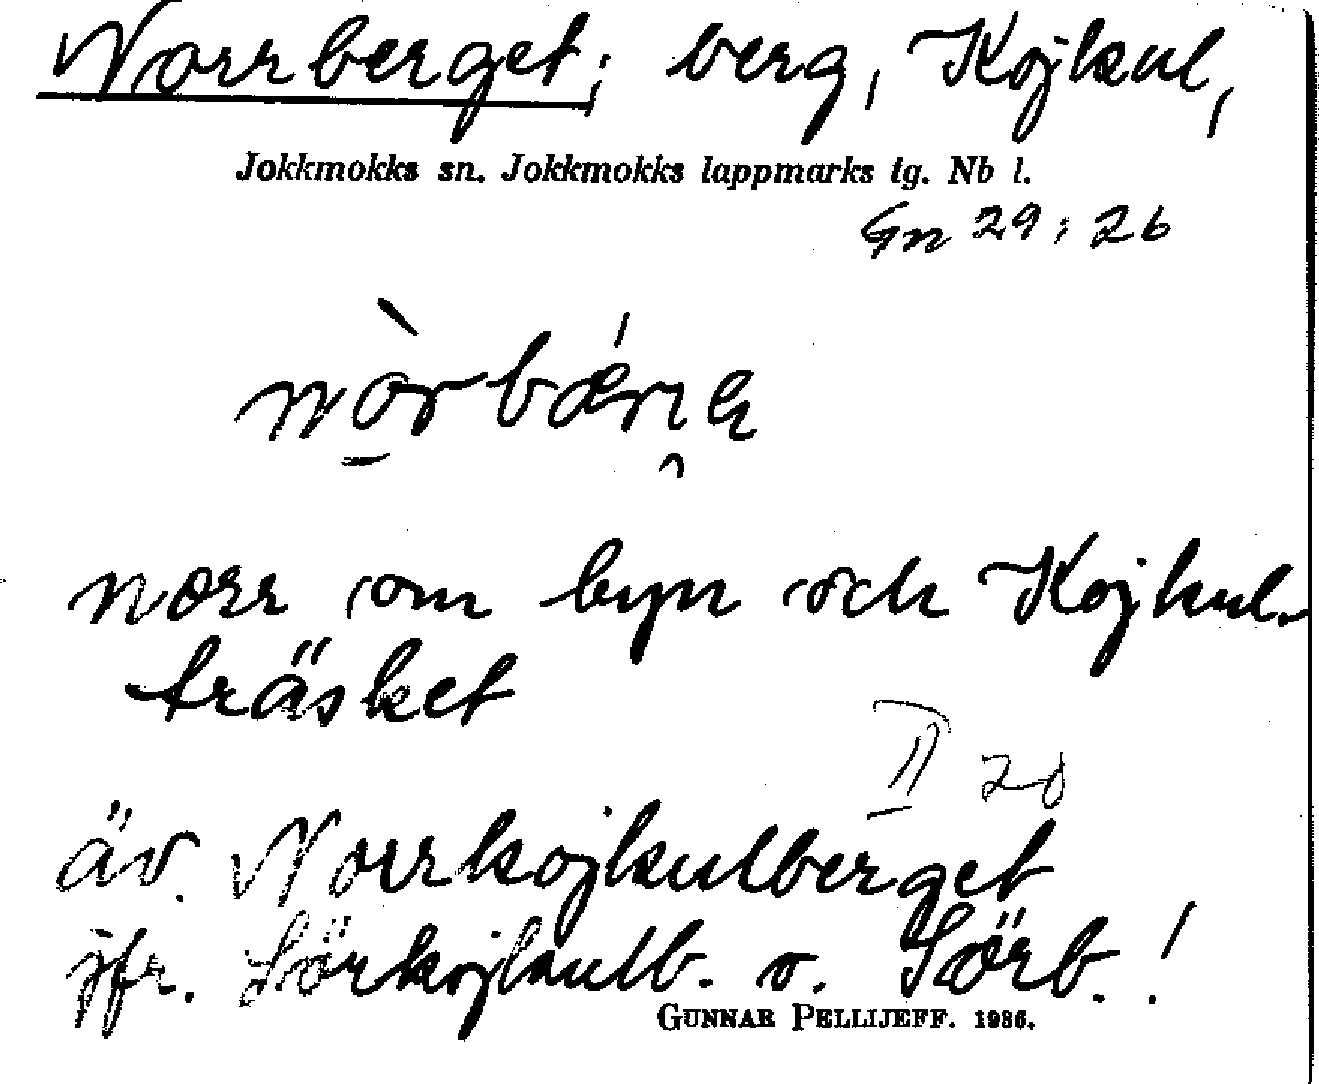 Norrberget; berg, Kojkul,
Jokkmokks sn. Jokkmokks lappmarks tg. Nb l.
Gn 29; 26
norr om byn och Kojkul-
träsket
II 20
äv. Norrkojkulberget
jfr. Sörkojkulb. o. Sörb.!
GUNNAR PELLIJEFF. 1936.